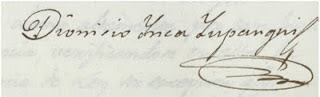 Dionisio Inca Yupanqui